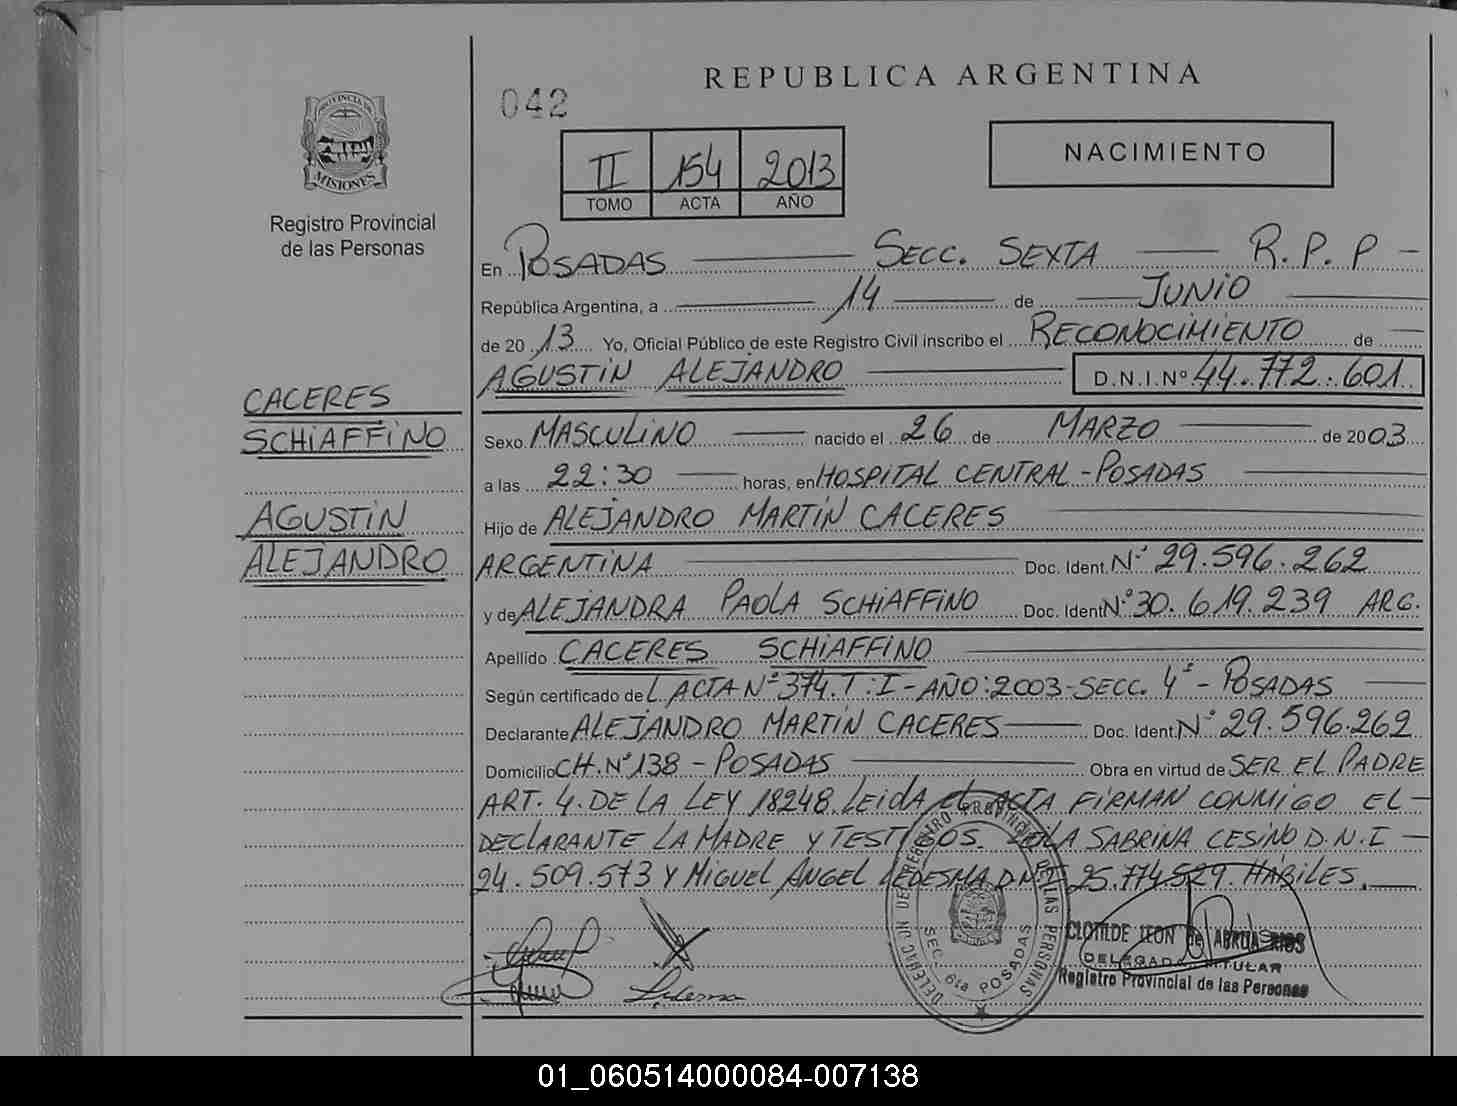 REPUBLICA ARGENTINA
042
II 154 2013
TOMO ACTA AÑO
NACIMIENTO
PROVINCIA DE
MISIONES
Registro Provincial
de las Personas
En POSADAS SECC. SEXTA R.P.P -
República Argentina, a 14 de JUNIO
de 2013 Yo, Oficial Público de este Registro Civil inscribo el RECONOCIMIENTO de
AGUSTIN ALEJANDRO D.N.I.Nº 44.772.601
CACERES
SCHIAFFINO
AGUSTIN
ALEJANDRO
Sexo MASCULINO nacido el 26 de MARZO de 2003
a las 22:30 horas, en HOSPITAL CENTRAL - POSADAS
Hijo de ALEJANDRO MARTIN CACERES
ARGENTINA Doc. Ident. Nº 29.596.262
y de ALEJANDRA PAOLA SCHIAFFINO Doc. Ident Nº 30.619.239 ARG.
Apellido CACERES SCHIAFFINO
Según certificado de L ACTA Nº 374.T:I-AÑO:2003-SECC. 4ª - POSADAS
Declarante ALEJANDRO MARTIN CACERES Doc. Ident. Nº 29.596.262
Domicilio CH. Nº 138 - POSADAS Obra en virtud de SER EL PADRE
ART. 4. DE LA LEY 18248. LEIDA EL ACTA FIRMAN CONMIGO EL-
DECLARANTE LA MADRE Y TESTIGOS. LOLA SABRINA CESINO D.N.I -
24.509.573 Y MIGUEL ANGEL LEDESMA D.N.I 25.774.529. HABILES.
DELEGACION DEL REGISTRO PROVINCIAL DE LAS PERSONAS
SEC. 6ta POSADAS
CLOTILDE LEON de
DELEGADA TITULAR
Registro Provincial de las Personas
Ledesma
01_060514000084-007138